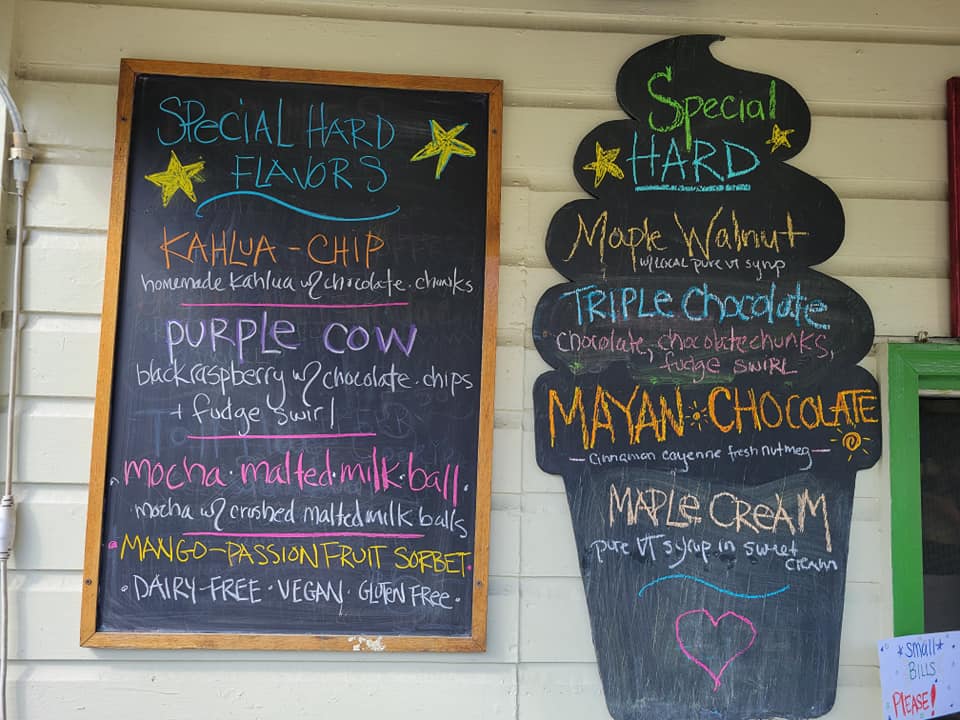 SPECIAL HARD
FLAVORS
KAHLUA-CHIP
homemade kahlua w/ chocolate chunks
PURPLE COW
black raspberry w/ chocolate chips
+ fudge swirl
mocha·malted·milk·ball
mocha w/ crushed malted milk balls
MANGO-PASSIONFRUIT SORBET
·DAIRY-FREE·VEGAN·GLUTEN FREE·
Special
HARD
Maple Walnut
w/ LOCAL pure VT syrup
TRIPLE Chocolate
chocolate, chocolate chunks,
fudge SWIRL
MAYAN CHOCOLATE
cinnamon cayenne fresh nutmeg
MAPLE CREAM
pure VT syrup in sweet
cream
*small*
BILLS
PLEASE!